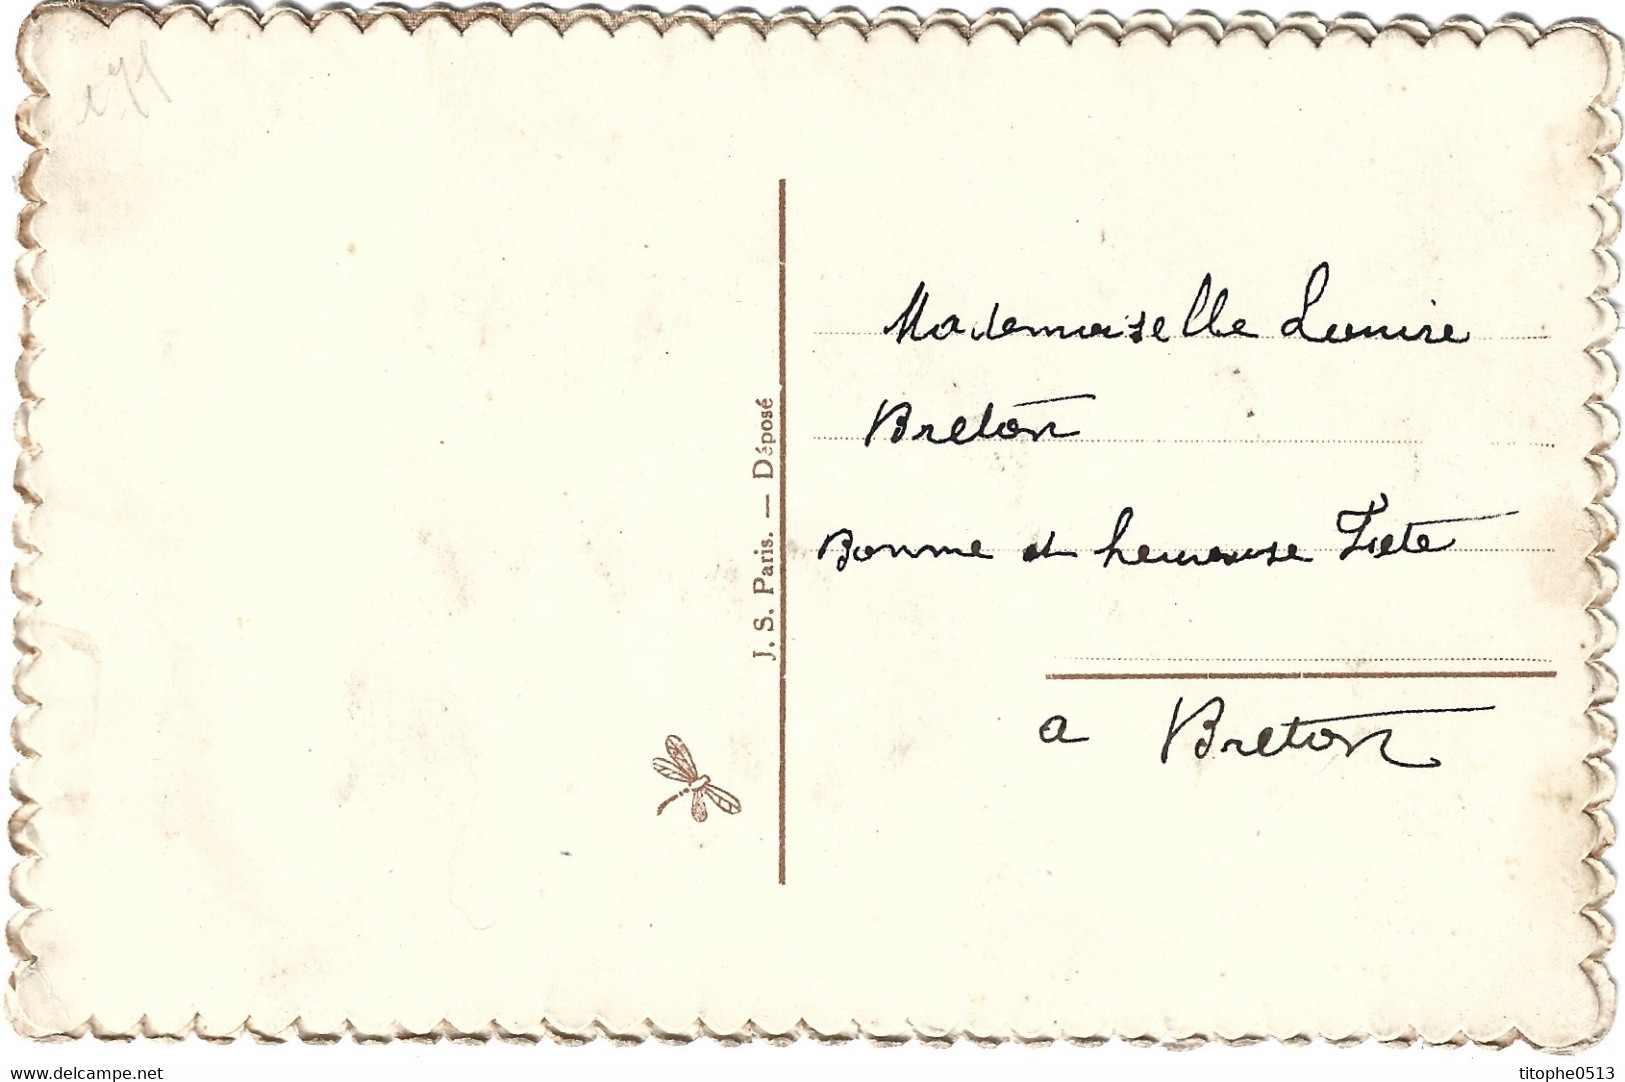 Mademoiselle Louise
Breton
Bonne et heureuse Fete
a Breton
J. S. Paris. — Déposé
www.delcampe.net
titophe0513